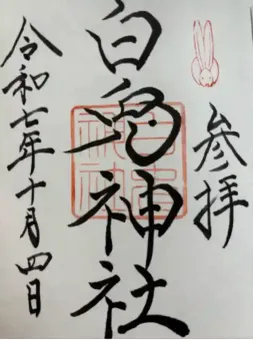 參拝
白兎神社
令和七年十月四日